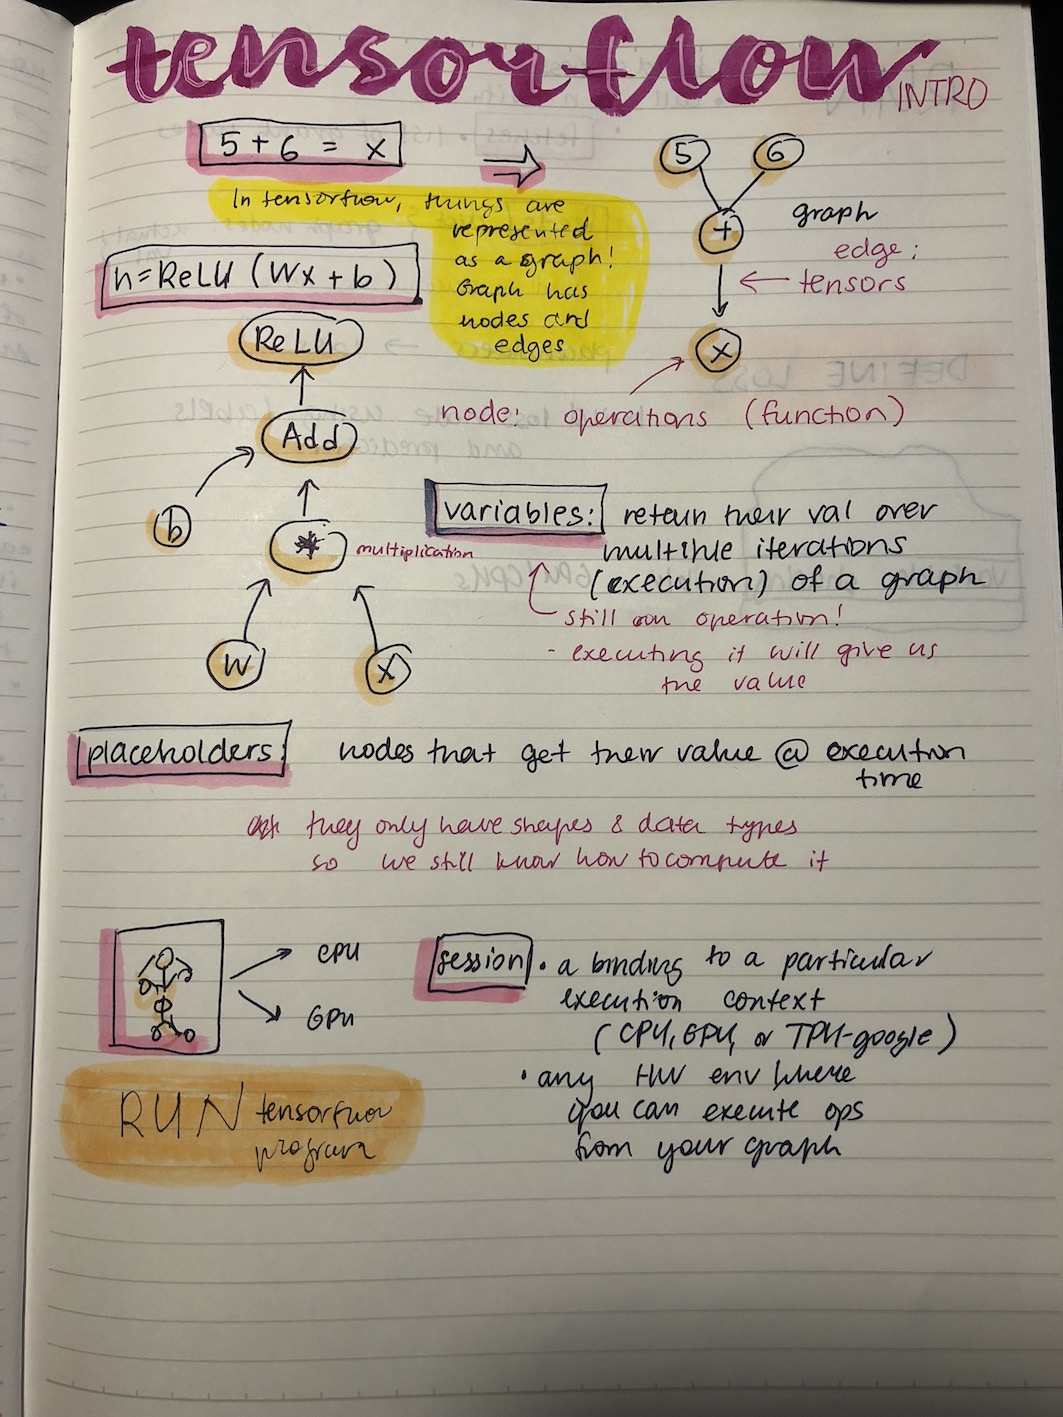 tensorflow
INTRO
5 + 6 = x
5
6
+
x
In tensorflow, things are
represented
as a graph!
Graph has
nodes and
edges
graph
edge:
tensors
node: operations (function)
h = ReLU (Wx + b)
ReLU
Add
b
*
multiplication
W
X
variables: retain their val over
multiple iterations
(execution) of a graph
still an operation!
- executing it will give us
the value
placeholders: nodes that get their value @ execution
time
they only have shapes & data types
so we still know how to compute it
CPU
GPU
RUN tensorflow
program
session • a binding to a particular
execution context
(CPU, GPU, or TPU-google)
• any HW env where
you can execute ops
from your graph
DEFINE LOSS